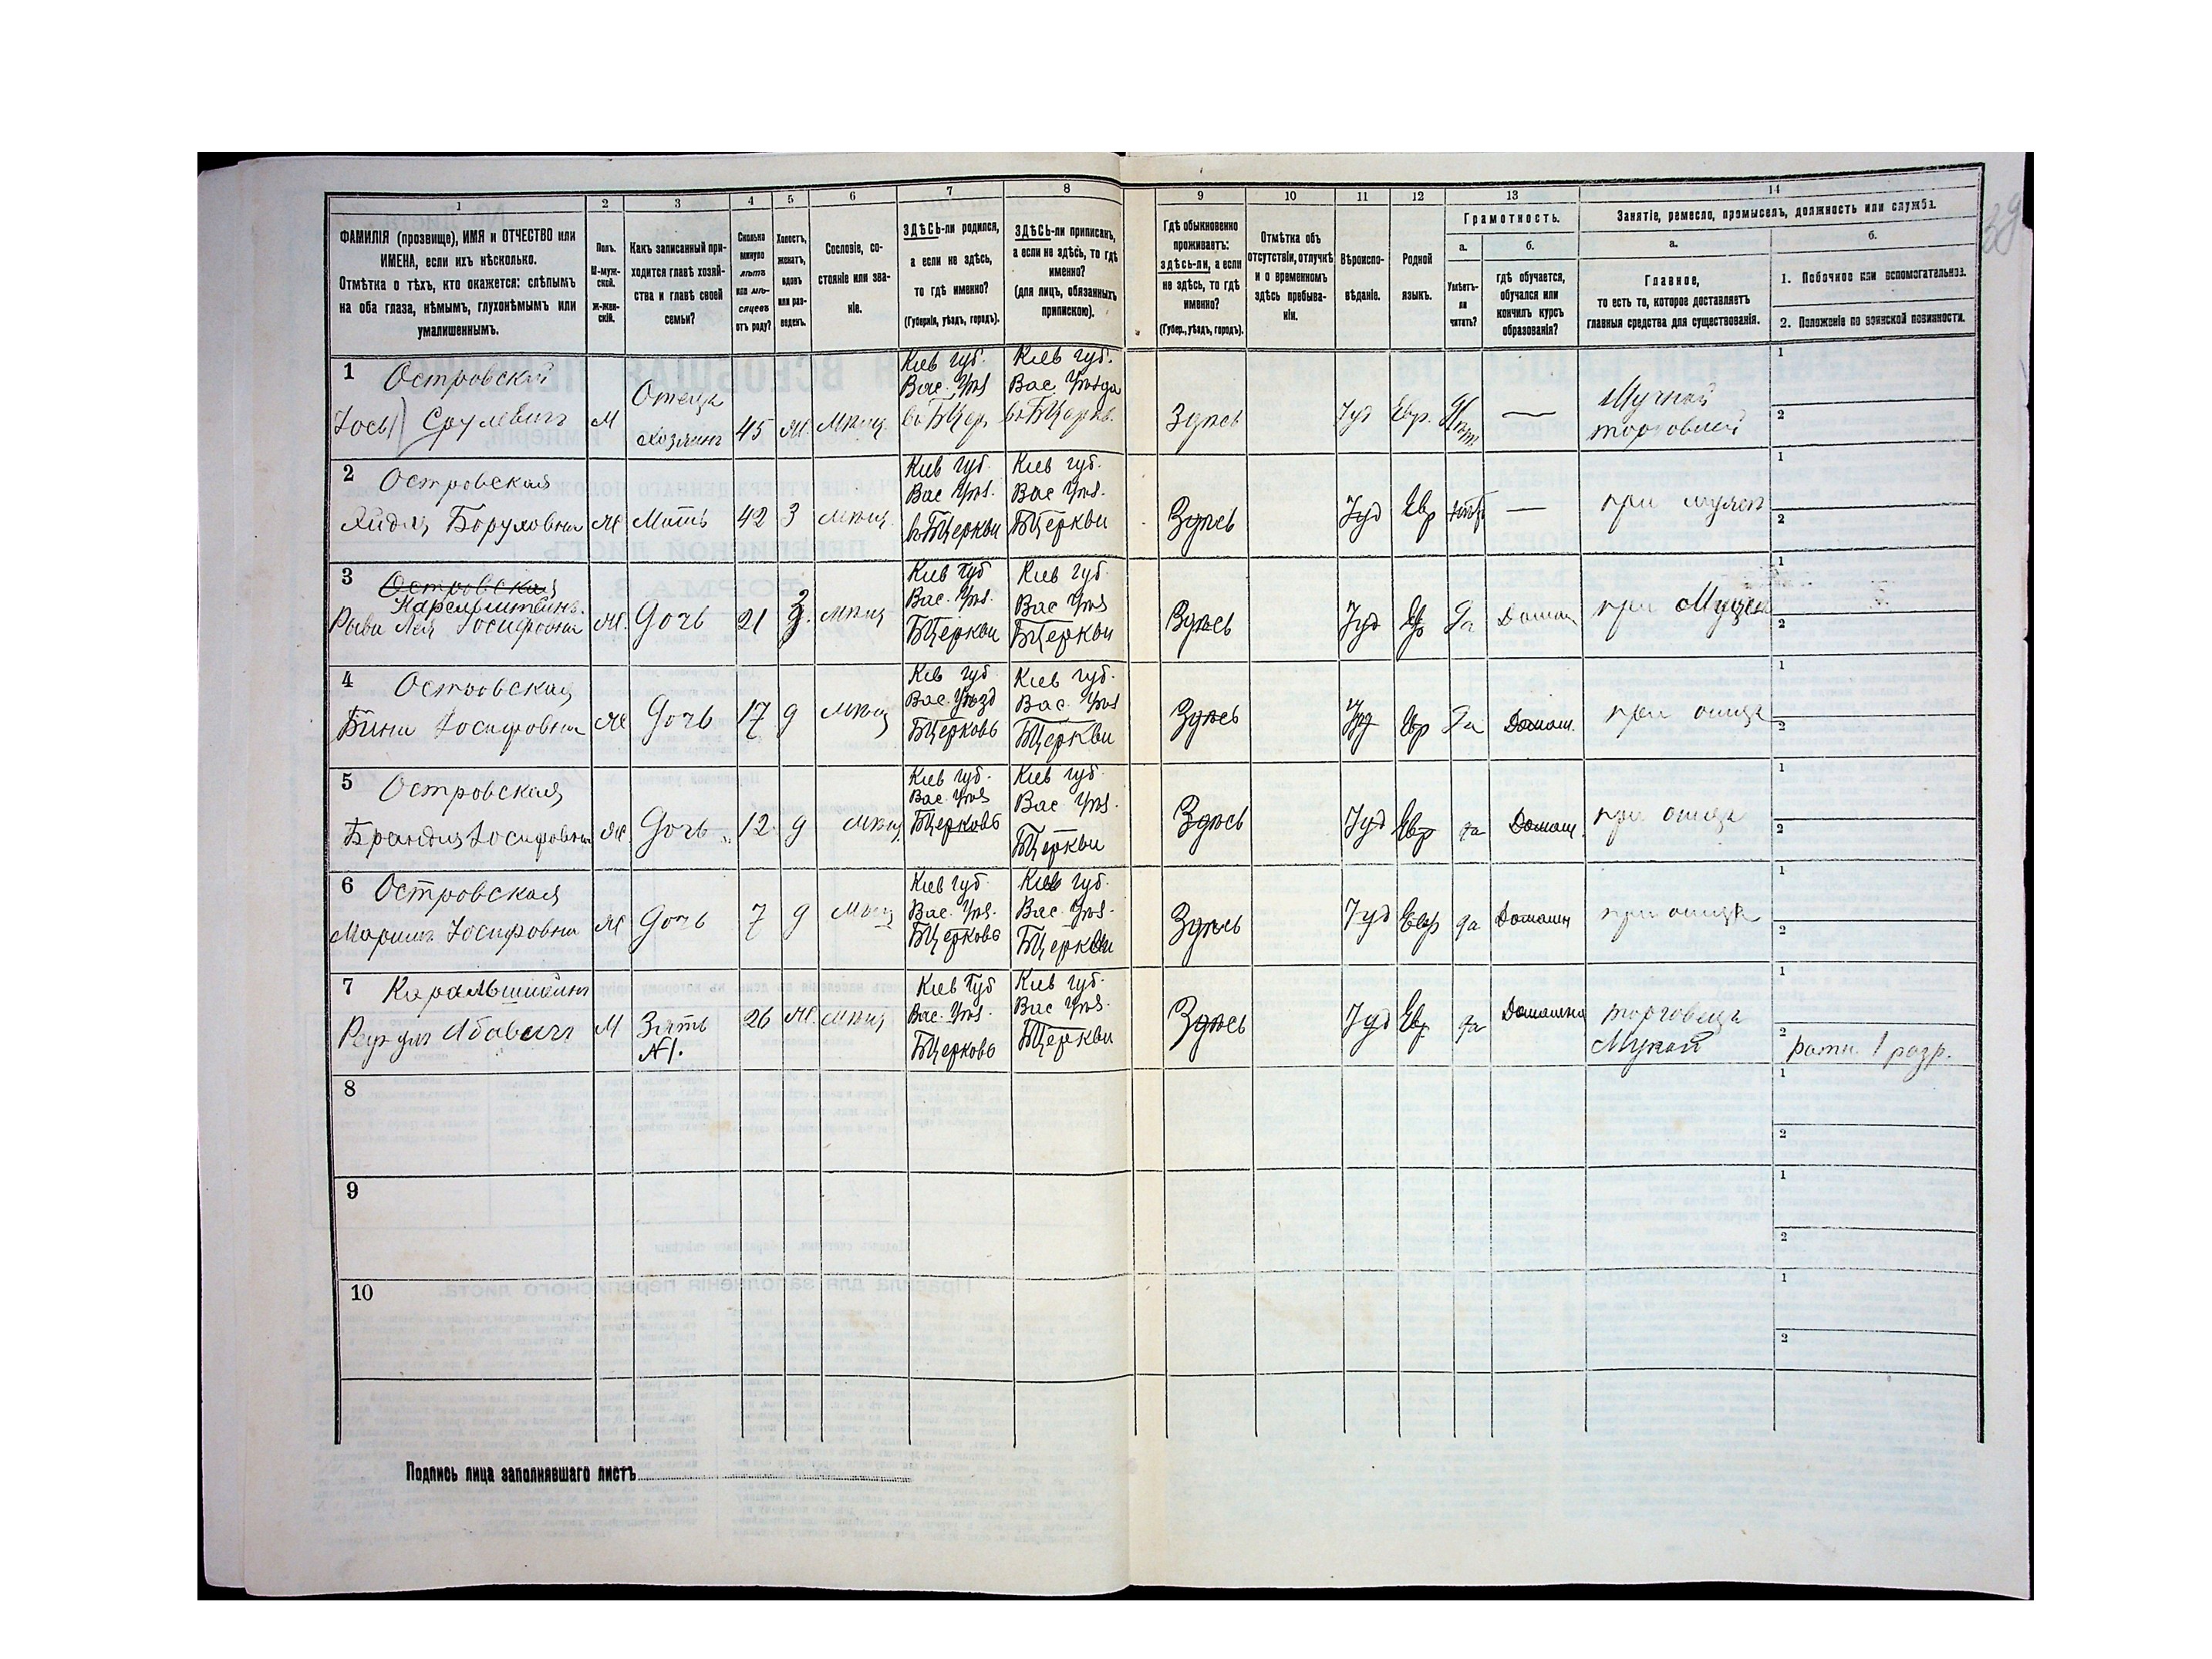 39
1 2 3 4 5 6 7 8 9 10 11 12 13 14
ФАМИЛІЯ (прозвище), ИМЯ и ОТЧЕСТВО или
ИМЕНА, если ихъ нѣсколько.
Отмѣтка о тѣхъ, кто окажется: слѣпымъ
на оба глаза, нѣмымъ, глухонѣмымъ или
умалишеннымъ.
Полъ.
М-муж-
ской.
ж-жен-
скій.
Какъ записанный при-
ходится главѣ хозяй-
ства и главѣ своей
семьи?
Сколько
минуло
лѣтъ
или мѣ-
сяцевъ
отъ роду?
Холостъ,
женатъ,
вдовъ
или раз-
веденъ.
Сословіе, со-
стояніе или зва-
ніе.
ЗДѢСЬ-ли родился,
а если не здѣсь,
то гдѣ именно?
(Губернія, уѣздъ, городъ).
ЗДѢСЬ-ли приписанъ,
а если не здѣсь, то гдѣ
именно?
(для лицъ, обязанныхъ
припискою).
Гдѣ обыкновенно
проживаетъ:
здѣсь-ли, а если
не здѣсь, то гдѣ
именно?
(Губер., уѣздъ, городъ).
Отмѣтка объ
отсутствіи, отлучкѣ
и о временномъ
здѣсь пребыва-
ніи.
Вѣроиспо-
вѣданіе.
Родной
языкъ.
Грамотность.
а.
Умѣетъ-
ли
читать?
б.
гдѣ обучается,
обучался или
кончилъ курсъ
образованія?
Занятіе, ремесло, промыселъ, должность или служба.
а.
Главное,
то есть то, которое доставляетъ
главныя средства для существованія.
б.
1. Побочное или вспомогательное.
2. Положеніе по воинской повинности.
1 Островскій
Іось Срулевичъ
М
Отецъ
хозяинъ
45
Ж
Мѣщ.
Кіев губ.
Вас. Уѣз
въ БЦер.
Кіев губ.
Вас Уѣзда
въ БЦеркв.
Здѣсь
Іуд
Евр.
Нѣт.
—
Мучной
торговлей
1
2
2 Островская
Боруховна
Ж
Мать
42
З
мѣщ.
Кіев губ.
Вас Уѣз.
въ БЦеркви
Кіев губ.
Вас Уѣз.
БЦеркви
Здѣсь
Іуд
Евр
нѣт
—
при мужѣ
1
2
3 Островская
Карельштейнъ
Рыва Лея Іосифовна
Ж.
Дочь
21
З.
мѣщ
Кіев губ
Вас. Уѣз.
БЦеркви
Кіев губ.
Вас Уѣз
БЦеркви
Здѣсь
Іуд
Ев
Да
Домаш
при Мужѣ
1
2
4 Островская
Бина Іосифовна
Ж
Дочь
17
д
мѣщ
Кіев губ
Вас. Уѣзд
БЦерковь
Кіев губ.
Вас. Уѣз
БЦеркви
Здѣсь
Іуд
Евр
Да
Домаш.
при отцѣ
1
2
5 Островская
Брандля Іосифовна
Ж
Дочь
12.
д
мѣщ.
Кіев губ.
Вас. Уѣз
БЦерковь
Кіев губ.
Вас. Уѣз.
БЦеркви
Здѣсь
Іуд
Евр
да
Домаш.
при отцѣ
1
2
6 Островская
Маримъ Іосифовна
Ж
Дочь
7
д
Мѣщ
Кіев губ.
Вас. Уѣз.
БЦерковь
Кіев губ.
Вас. Уѣз.
БЦеркви
Здѣсь
Іуд
Евр
да
Домашн
при отцѣ
1
2
7 Каральштейнъ
Абовичъ
М
Зять
№1.
26
Ж.
мѣщ
Кіев губ
Вас. Уѣз.
БЦерковь
Кіев губ.
Вас Уѣз.
БЦеркви
Здѣсь
Іуд
Евр.
да
Домашно
торговецъ
Мукой
1
2 ратн. 1 разр.
8
1
2
9
1
2
10
1
2
Подпись лица заполнявшаго листъ